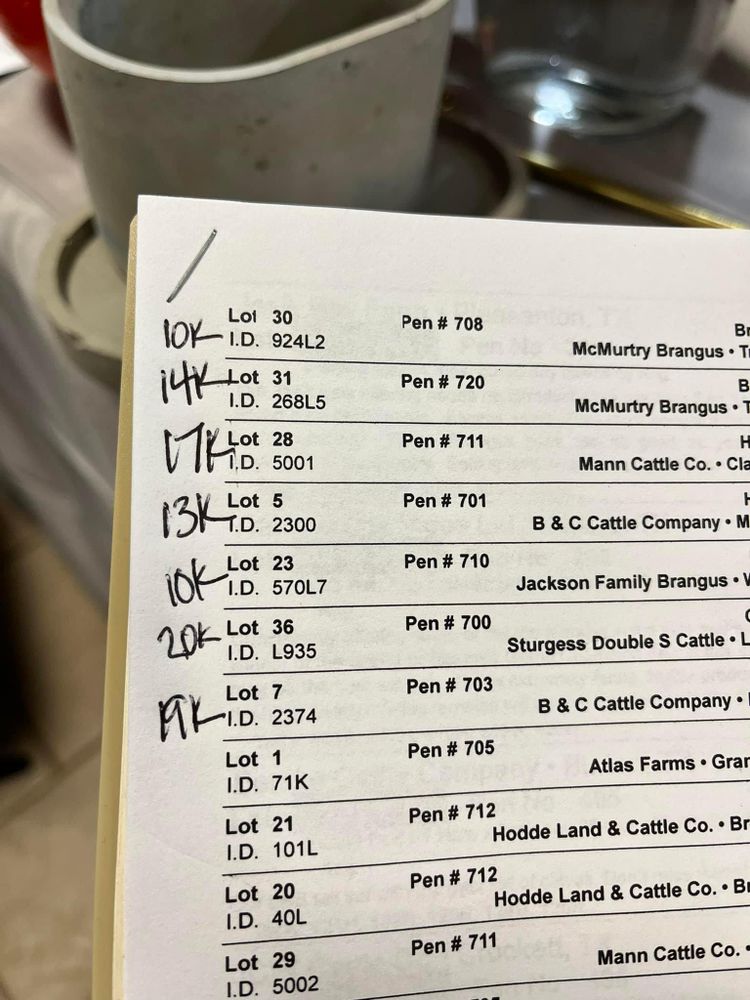 Lot 30 Pen # 708 Br
10K I.D. 924L2 McMurtry Brangus • Tr
Lot 31 Pen # 720 B
14K I.D. 268L5 McMurtry Brangus • T
Lot 28 Pen # 711 H
17K I.D. 5001 Mann Cattle Co. • Cla
Lot 5 Pen # 701 H
13K I.D. 2300 B & C Cattle Company • M
Lot 23 Pen # 710
10K I.D. 570L7 Jackson Family Brangus • W
Lot 36 Pen # 700
20K I.D. L935 Sturgess Double S Cattle • L
Lot 7 Pen # 703
19K I.D. 2374 B & C Cattle Company •
Lot 1 Pen # 705
I.D. 71K Atlas Farms • Gran
Lot 21 Pen # 712
I.D. 101L Hodde Land & Cattle Co. • Br
Lot 20 Pen # 712
I.D. 40L Hodde Land & Cattle Co. • Br
Lot 29 Pen # 711
I.D. 5002 Mann Cattle Co. •